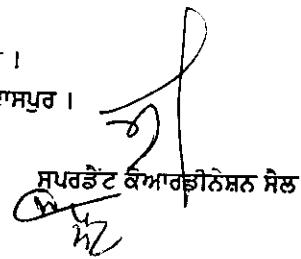 ।
ਾਸਪੁਰ ।
ਸੁਪਰਡੈਂਟ ਕੋਆਰਡੀਨੇਸ਼ਨ ਸੈਲ